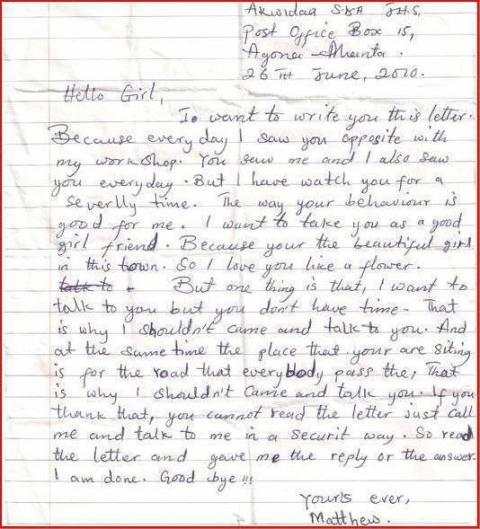 Akwidaa S.D.A J.H.S,
Post Office Box 15,
Agona Ahanta.
26 TH June, 2010.
Hello Girl,
Io want to write you this letter.
Because every day I saw you opposite with
my workshop. You saw me and I also saw
you everyday. But I have watch you for a
severlly time. The way your behaviour is
good for me. I want to take you as a good
girl friend. Because your the beautiful girl
in this town. So I love you like a flower.
talk to - But one thing is that, I want to
talk to you but you don't have time. That
is why I shouldn't came and talk to you. And
at the same time the place that your are siting
is for the road that everybody pass the, That
is why I shouldn't came and talk you. If you
thank that, you cannot read the letter just call
me and talk to me in a securit way. So read
the letter and gave me the reply or the answer.
I am done. Good bye!!!
Yours ever,
Matthew.